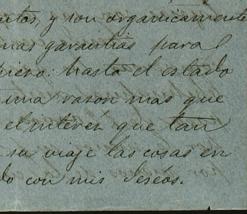 y son orgánicamente
mas garantias para
hasta el estado
una razon mas que
el interés que tan
su viaje las cosas en
con mis deseos.